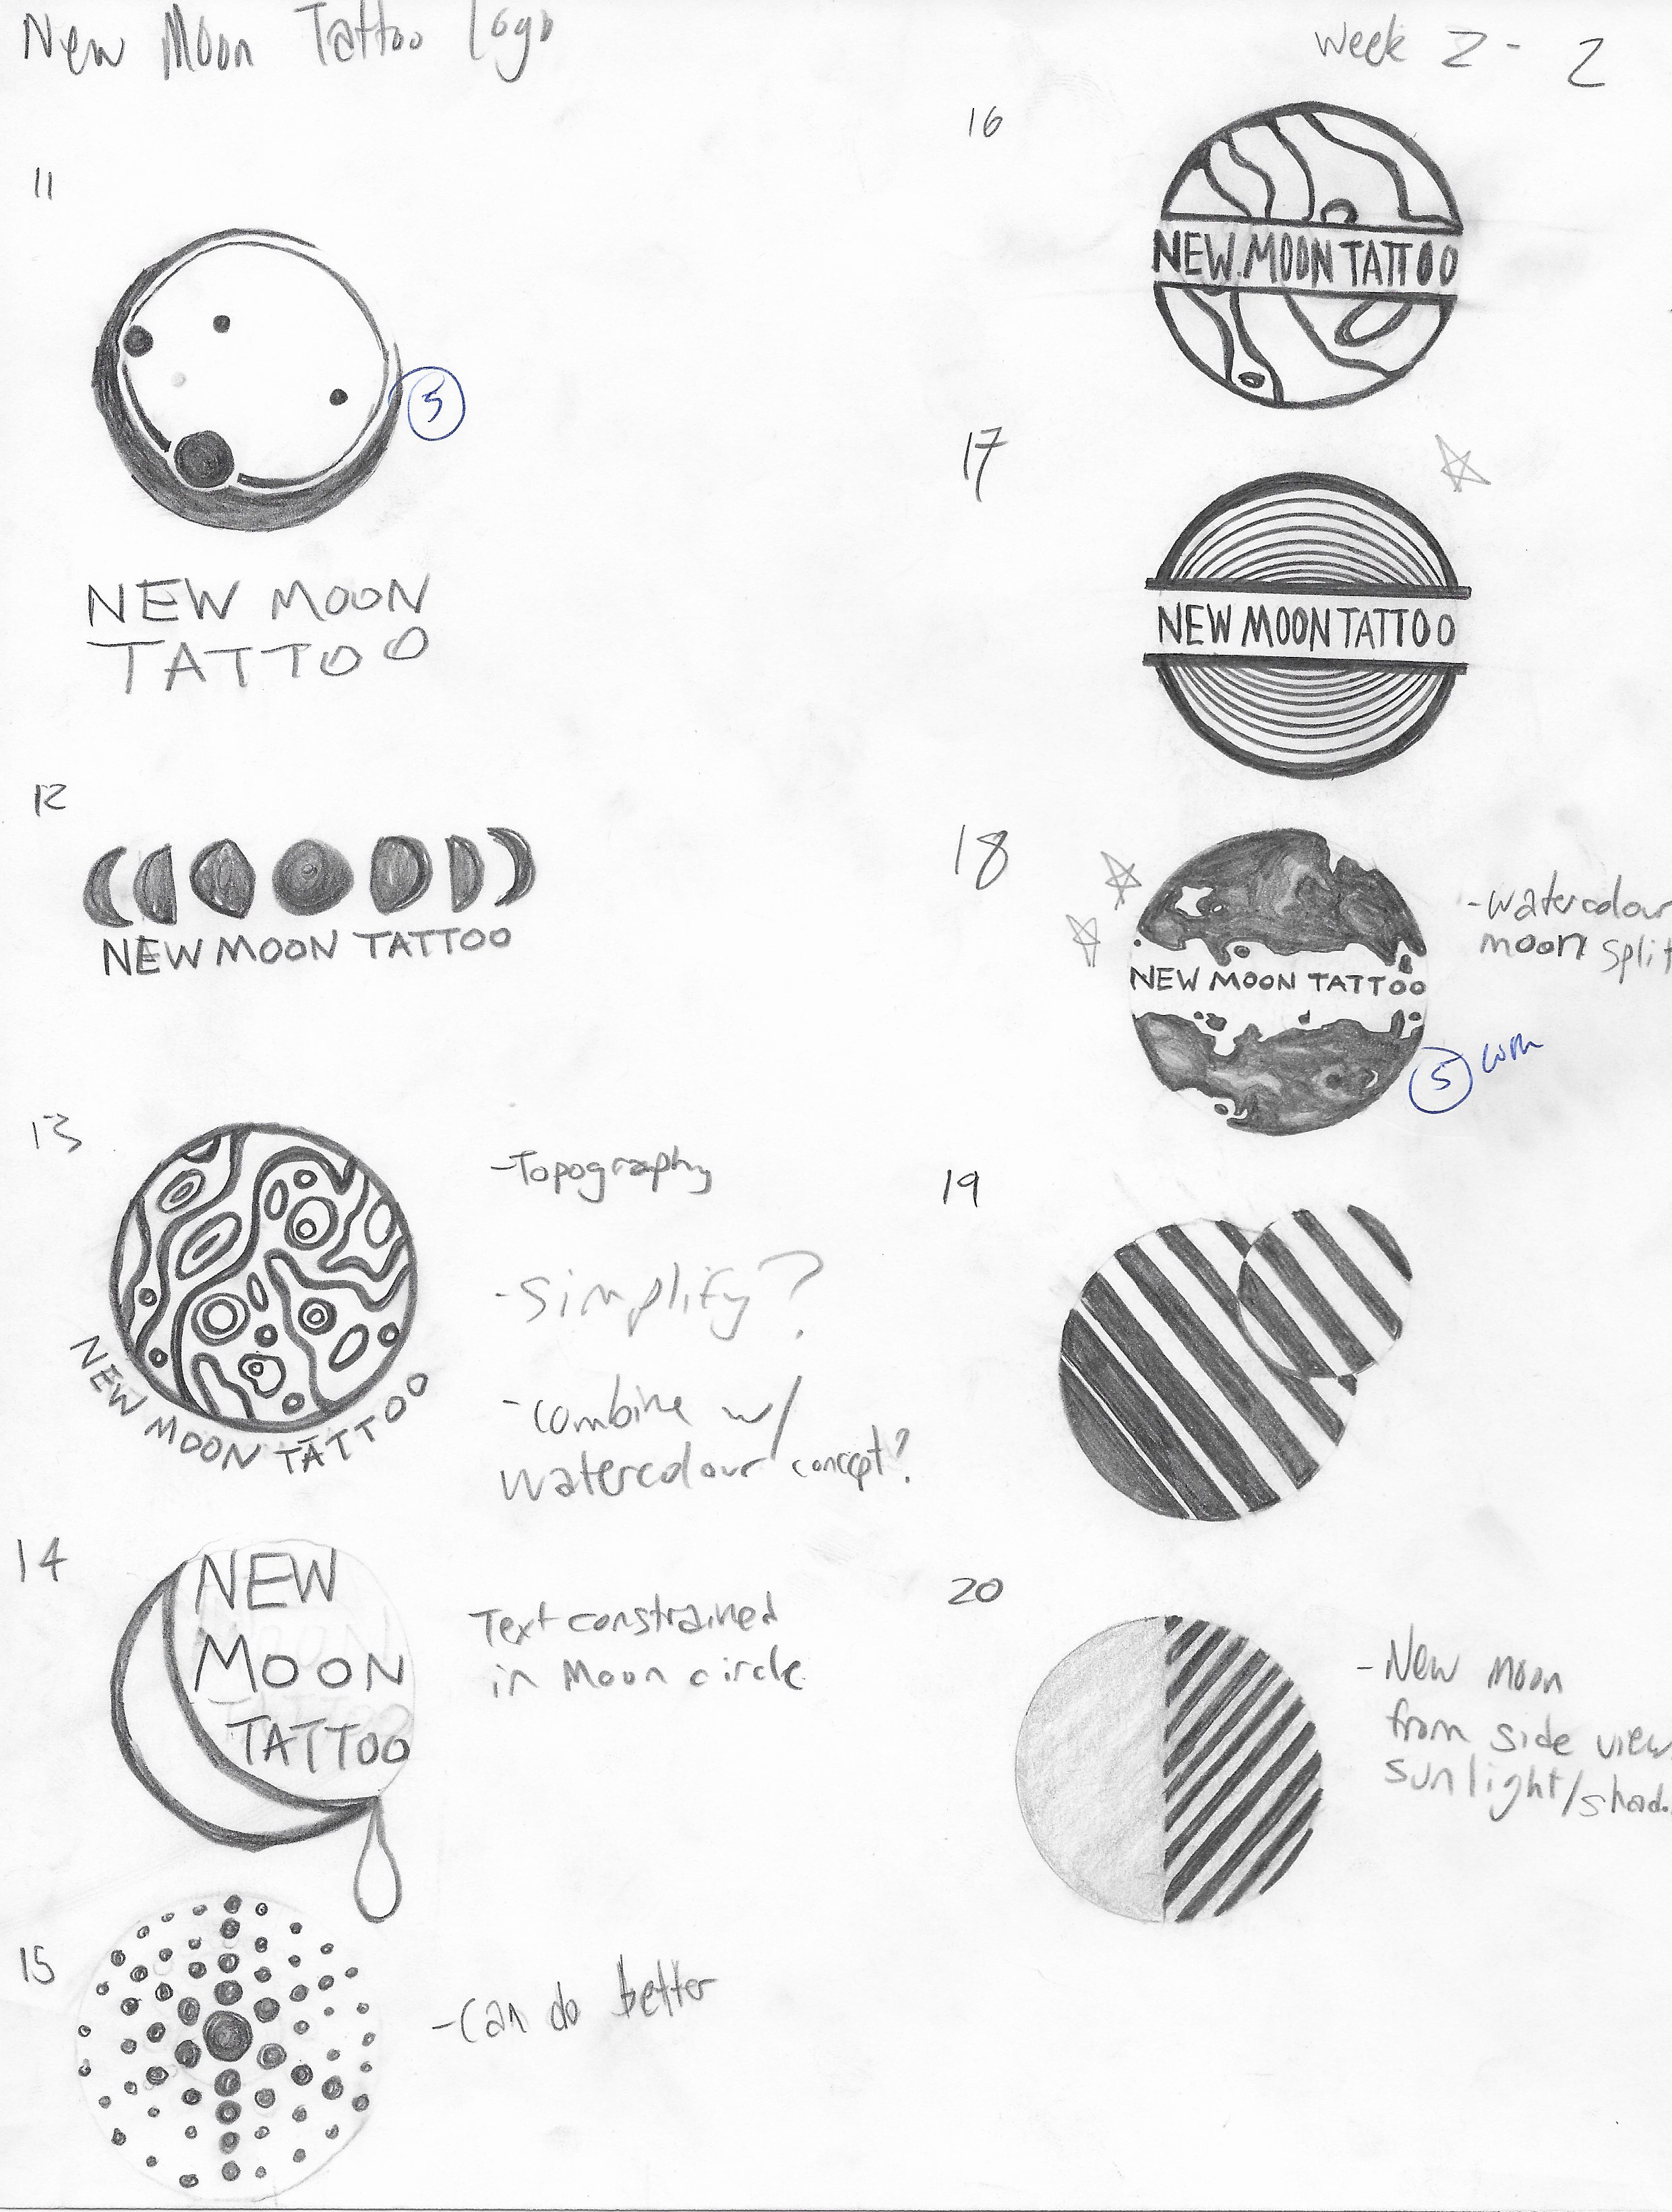 New Moon Tattoo Logo
Week 2-2
11
5
NEW MOON
TATTOO
12
NEW MOON TATTOO
13
-Topography
-Simplify?
-combine w/
watercolour concept?
NEW MOON TATTOO
14
NEW
MOON
TATTOO
Text constrained
in Moon circle
15
-can do better
16
NEW MOON TATTOO
17
NEW MOON TATTOO
18
-watercolour
moon split
NEW MOON TATTOO
5
19
20
-New moon
from side view
sunlight/shad